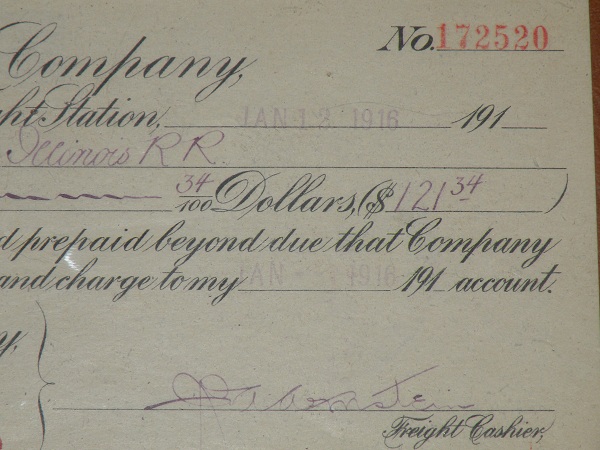 Company, No. 172520
ht Station, JAN 13 1916 191
Illinois R R.
34/100 Dollars, ($121 34)
d prepaid beyond due that Company
and charge to my JAN 1916 191 account.
y,
Freight Cashier,